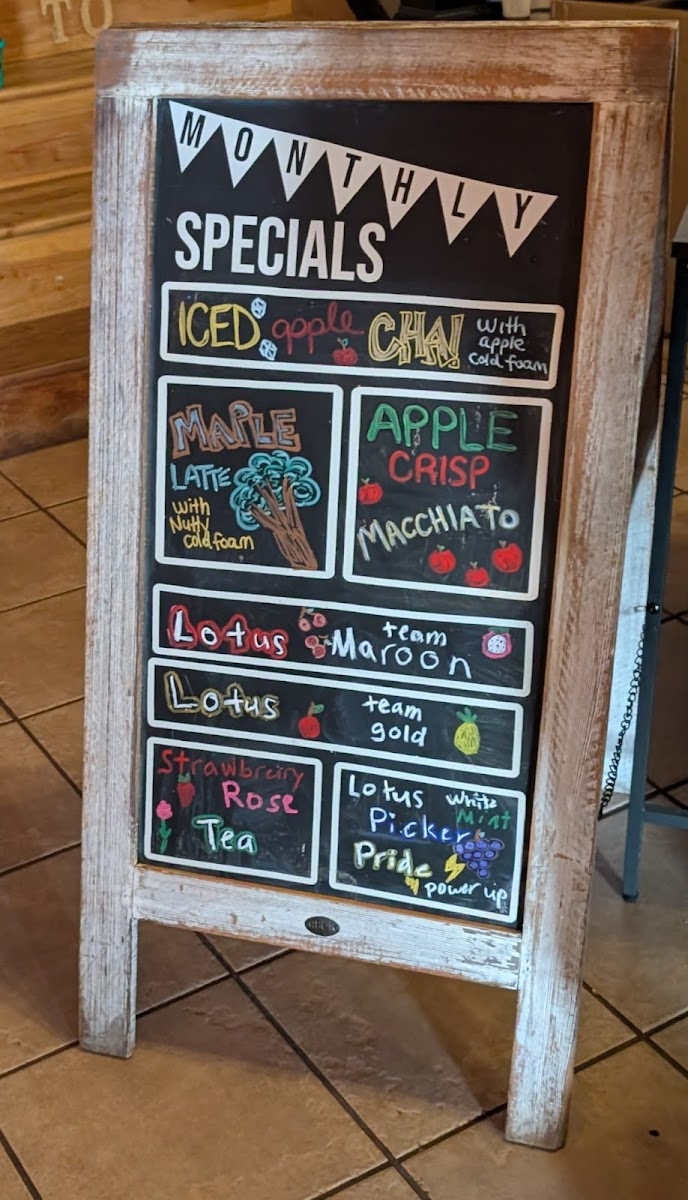 TO
MONTHLY
SPECIALS
ICED apple CHAI with
apple
cold foam
MAPLE
LATTE
with
Nutty
cold foam
APPLE
CRISP
MACCHIATO
Lotus team
Maroon
Lotus team
gold
Strawberry
Rose
Tea
Lotus White
Mint
Picker
Pride
power up